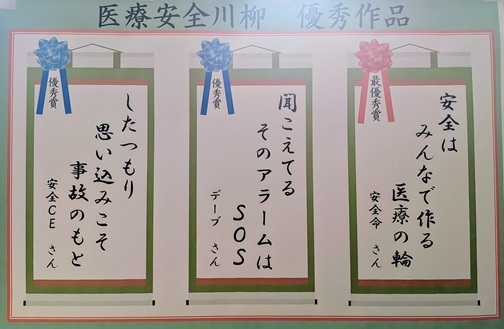 医療安全川柳　優秀作品
最優秀賞
安全は
みんなで作る
医療の輪
安全命　さん
優秀賞
聞こえてる
そのアラームは
SOS
デーブ　さん
優秀賞
したつもり
思い込みこそ
事故のもと
安全CE　さん